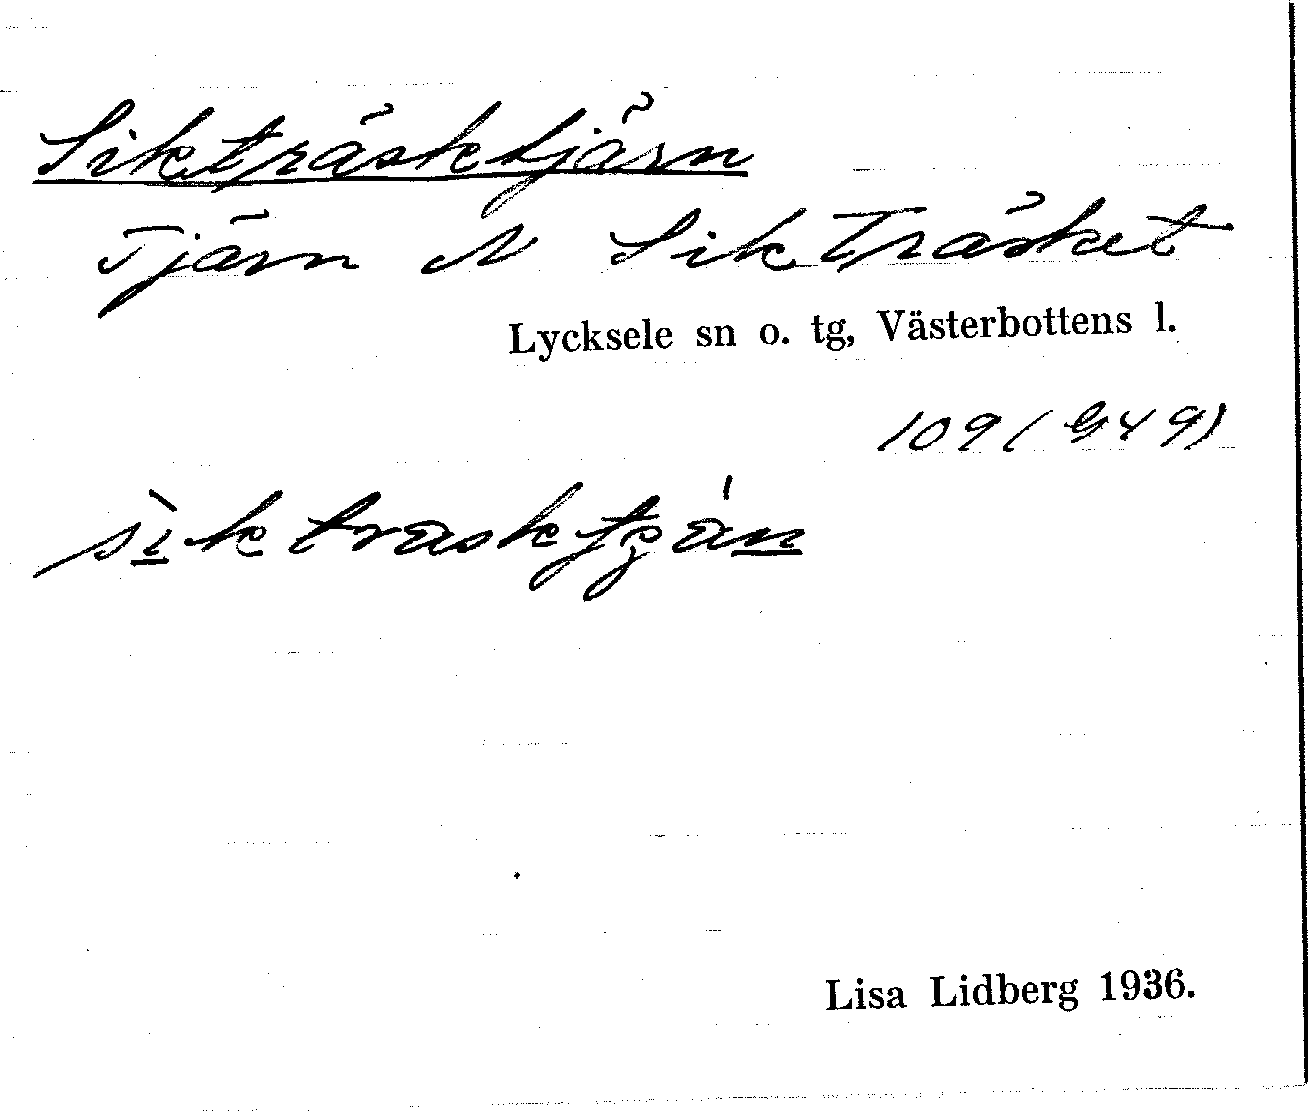 Sikträsktjärn
Tjärn N Sikträsket
Lycksele sn o. tg, Västerbottens l.
109 (949)
Lisa Lidberg 1936.